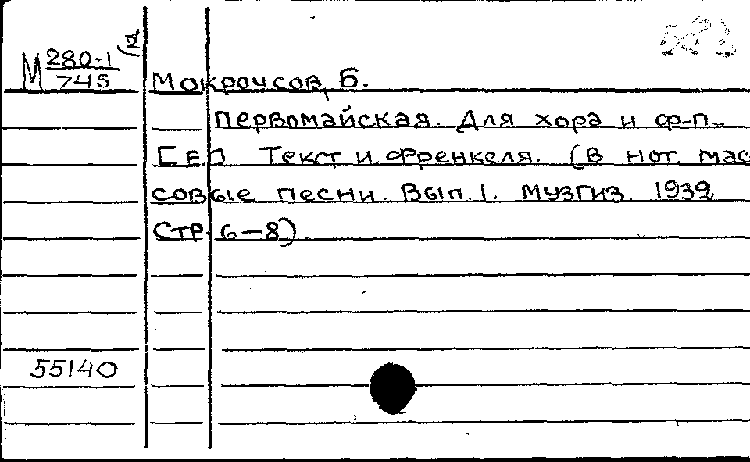 М 280-1/745
Мокроусов, Б.
Первомайская. Для хора и ф-п.
Текст И. Френкеля. (В нот. Мас
совые песни. Вып. 1. Музгиз. 1939
Стр. 6-8).
55140